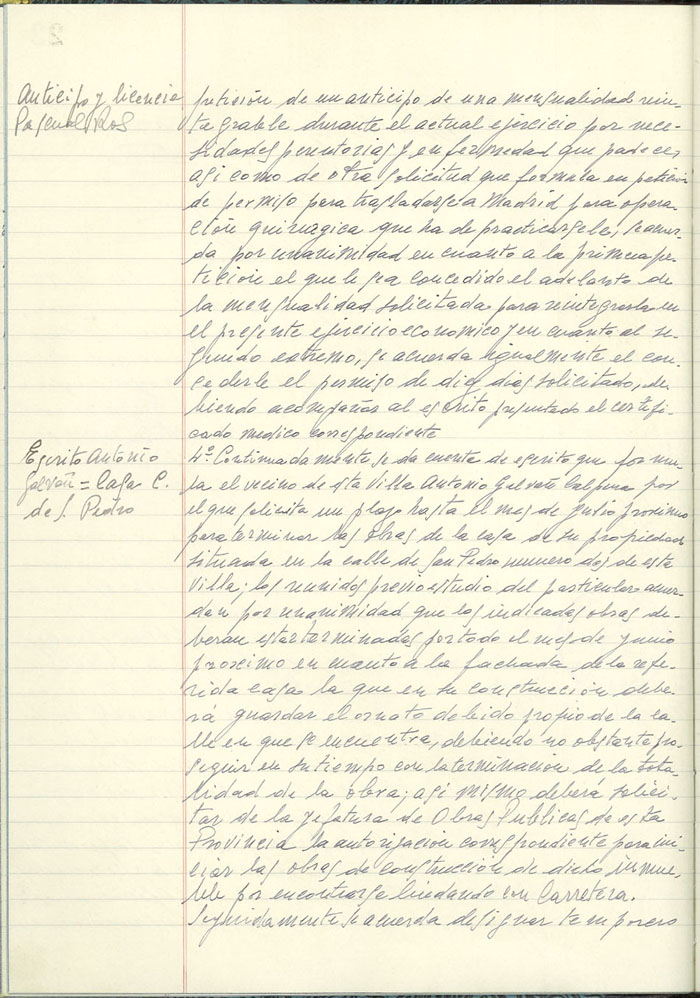 Anticipo y licencia
Pascual Ros
petición de un anticipo de una mensualidad rein-
tegrable durante el actual ejercicio por nece-
sidades perentorias y enfermedad que padece,
asi como de otra solicitud que formula en petición
de permiso para trasladarse a Madrid para opera-
ción quirurgica que ha de practicarsele; se acuer-
da por unanimidad en cuanto a la primera pe-
tición el que le sea concedido el adelanto de
la mensualidad solicitada para reintegrarla en
el presente ejercicio economico y en cuanto al se-
gundo extremo, se acuerda igualmente el con-
cederle el permiso de diez dias solicitado, de-
biendo acompañar al escrito presentado el certifi-
cado medico correspondiente
Escrito Antonio
Galvañ = Casa C.
de S. Pedro
4º Continuadamente se da cuenta de escrito que formu-
la el vecino de esta Villa Antonio Galvañ Calpena por
el que solicita un plazo hasta el mes de Julio proximo
para terminar las obras de la casa de su propiedad
situada en la calle de San Pedro numero dos de esta
Villa; los reunidos previo estudio del particular acuer-
dan por unanimidad que las indicadas obras de-
beran estar terminadas por todo el mes de junio
proximo en cuanto a la fachada de la refe-
rida casa la que en su construcción debe-
rá guardar el ornato debido propio de la ca-
lle en que se encuentra, debiendo no obstante pro-
seguir en su tiempo con la terminacion de la tota-
lidad de la obra; asi mismo debera solici-
tar de la Jefatura de Obras Publicas de esta
Provincia la autorizacion correspondiente para ini-
ciar las obras de construcción de dicho inmue-
ble por encontrarse lindando con Carretera.
Seguidamente se acuerda designar temporero